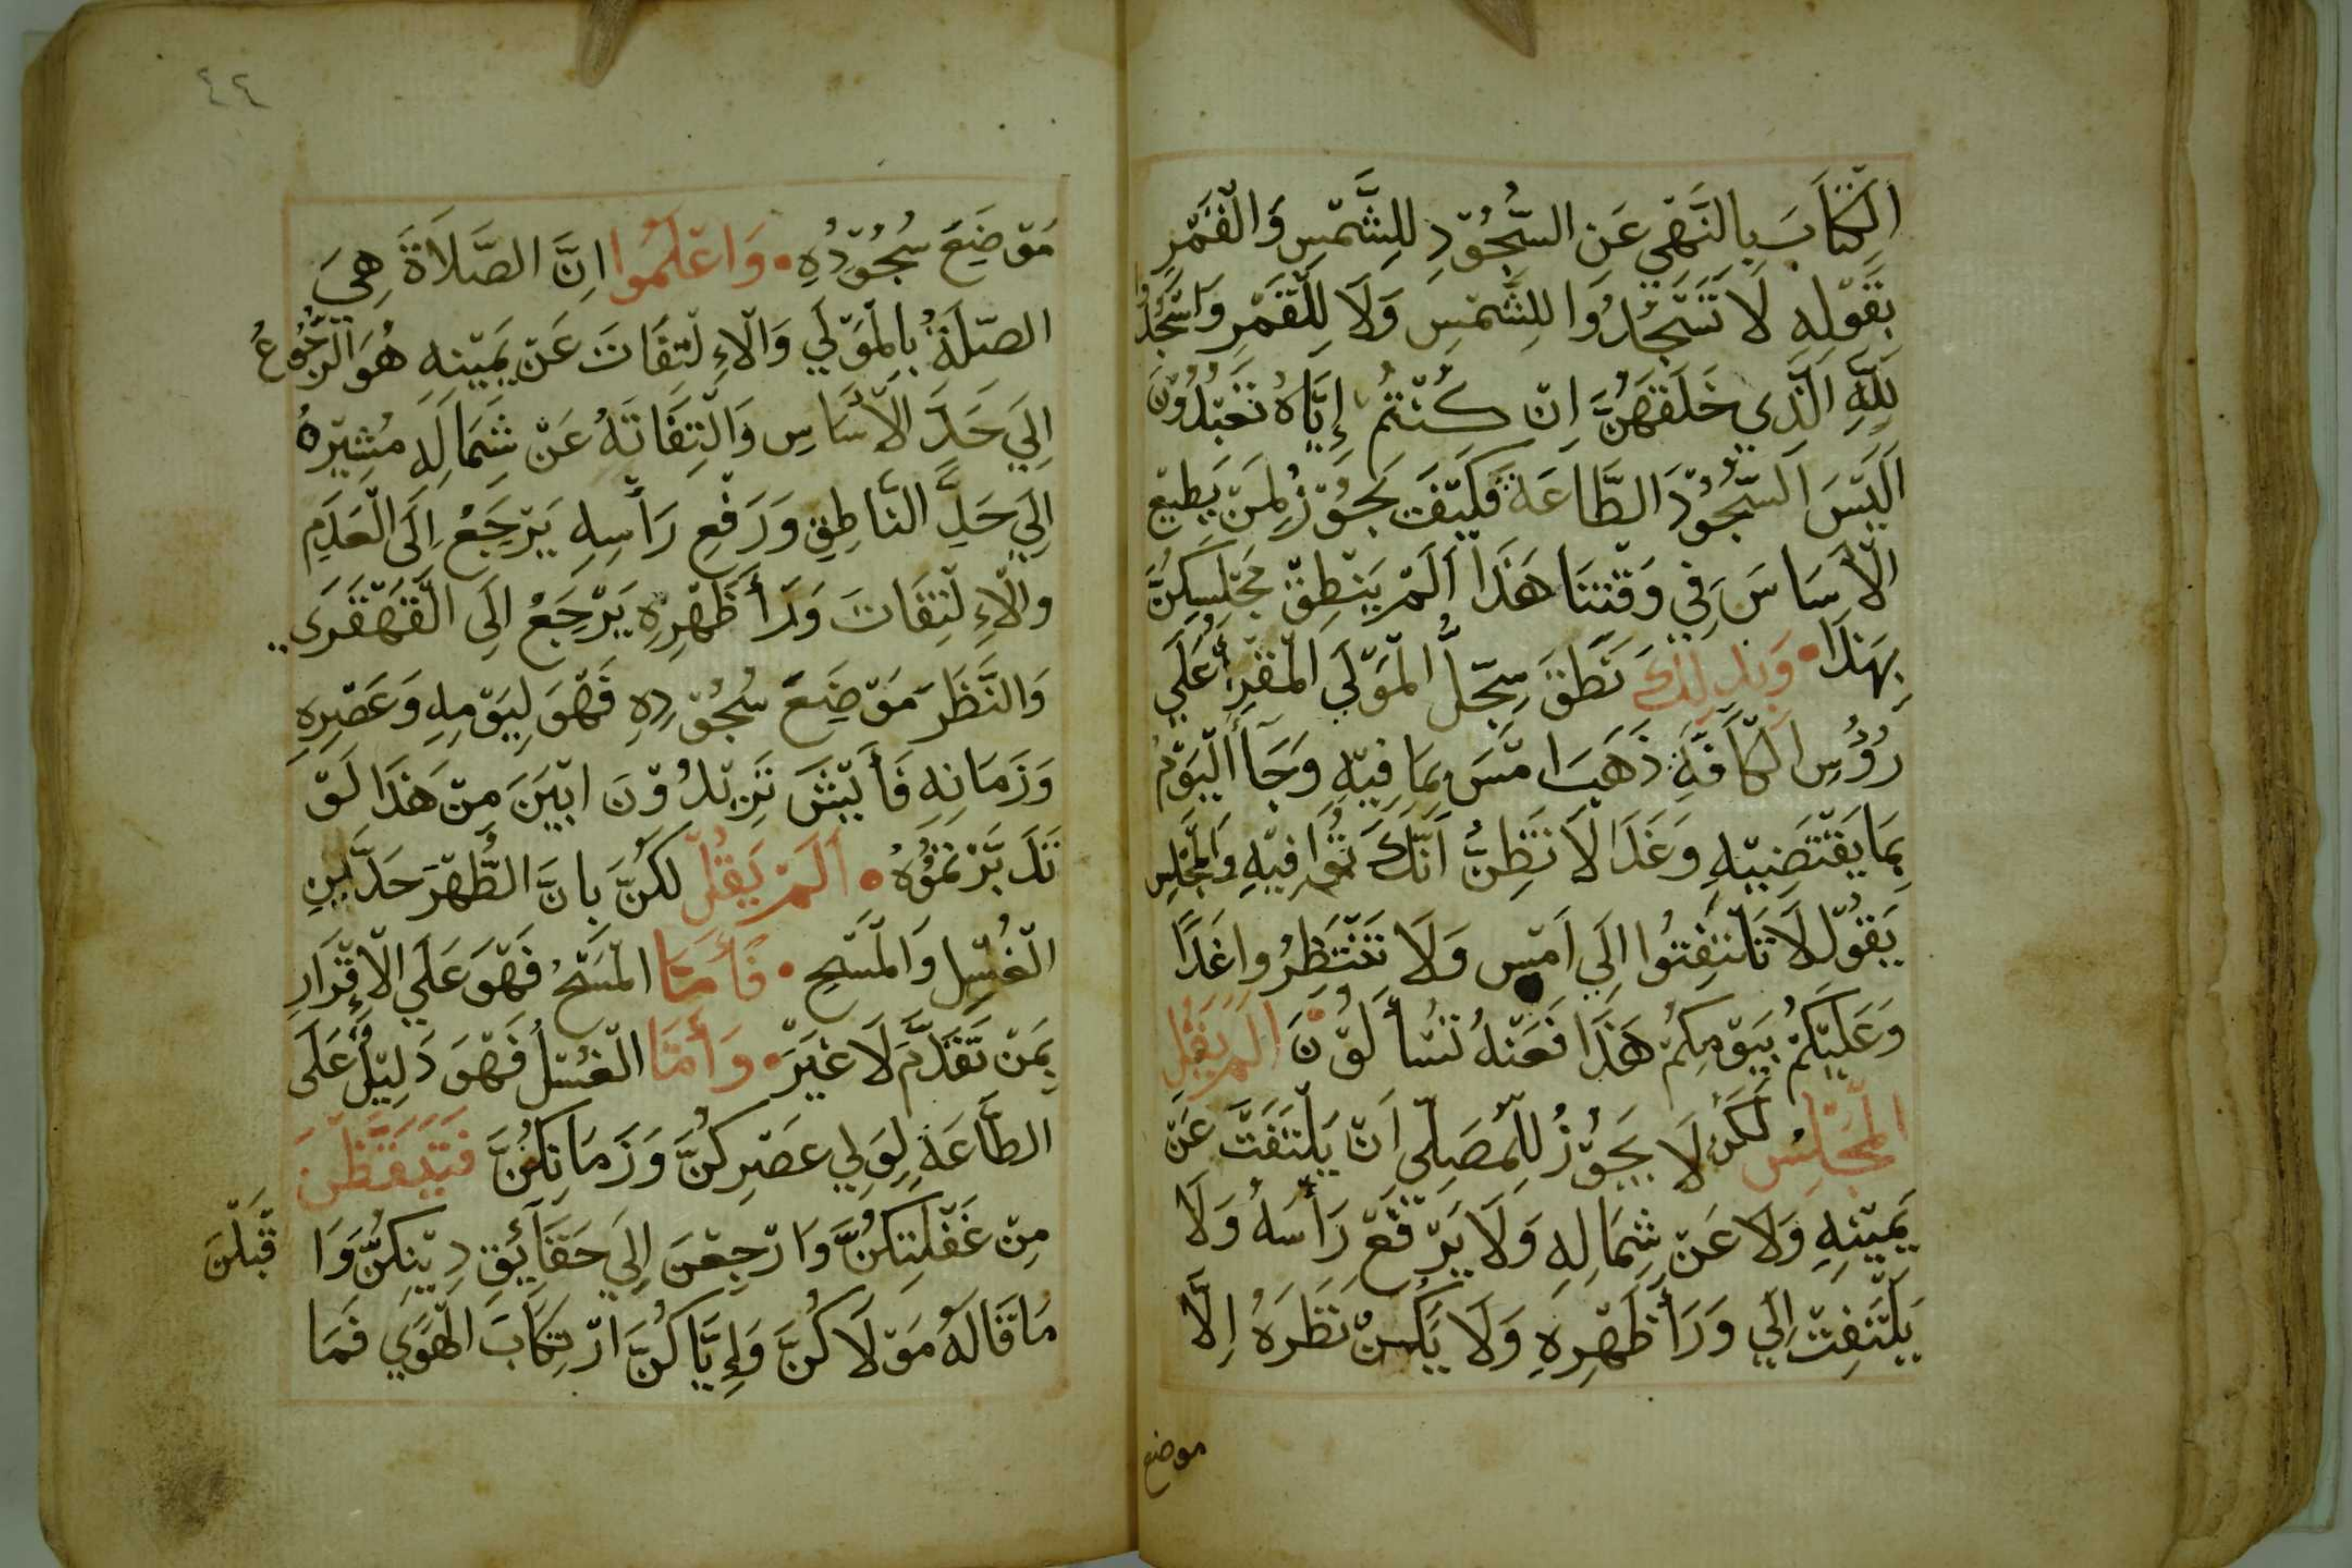 الكتاب بالنهي عن السجود للشمس والقمر
بقوله لا تسجدوا للشمس ولا للقمر واسجدوا
لله الذي خلقهن ان كنتم إياه تعبدون
اليس السجود الطاعة فكيف يجوز لمن يطيع
الأساس في وقتنا هذا ألم ينطق مجلسكن
بهذا • وبذلك نطق سجل المولي المقرأ علي
رؤس الكافة ذهب امس بما فيه وجأ اليوم
بما يقتضييه وغدا لا تظن أنك توافيه والمجلس
يقول لا تلتفتوا الي امس ولا تنتظروا غدا
وعليكم بيومكم هذا فعنه تسألون الم يقل
المجلس لكن لا يجوز للمصلي ان يلتفت عن
يمينه ولا عن شماله ولا يرفع رأسه ولا
يلتفت الي ورأ ظهره ولا يكن نظره إلا
موضع
٤٢
موضع سجوده • واعلموا ان الصلاة هي
الصلة بالمولي والإلتفات عن يمينه هو الرجوع
الي حد الأساس والتفاته عن شماله مشيره
الي حد الناطق ورفع رأسه يرجع الى العدم
والإلتفات ورأ ظهره يرجع الى القهقرى
والنظر موضع سجوده فهو ليومه وعصره
وزمانه فأيش تريدون ابين من هذا لو
تدبرتموه • ألم يقل لكن بان الطهر حدين
الغسل والمسح • فأما المسح فهو علي الإقرار
بمن تقدم لا غير • وأما الغسل فهو دليل على
الطاعة لولي عصركن وزمانكن فتيقظن
من غفلتكن وارجعن إلي حقائق دينكن وا قبلن
ما قاله مولاكن وإياكن ارتكاب الهوي فما